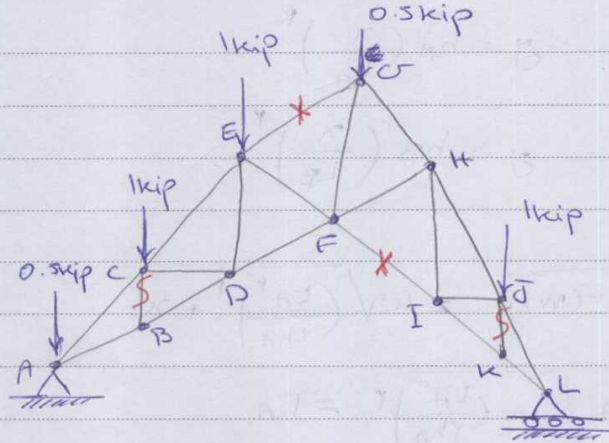 0.5kip
1kip
G
E
H
1kip
1kip
F
0.5kip
C
D
I
J
B
A
K
L